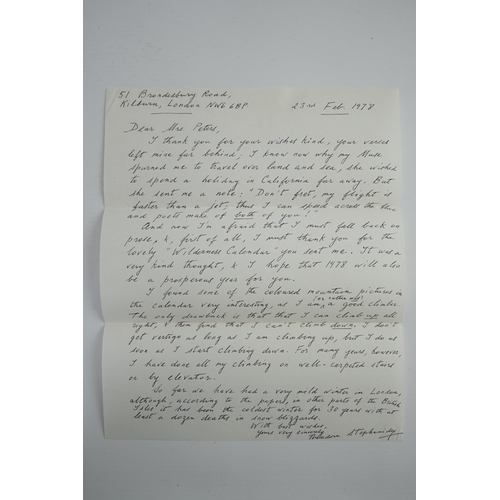 51 Brondesbury Road,
Kilburn, London NW6 6BP. 23rd Feb. 1978
Dear Mrs Peters,
I thank you for your wishes kind, your verses
left mine far behind; I know now why my Muse
spurned me to travel over land and sea, She wished
to spend a holiday in California far away. But
she sent me a note: "Don't fret, my flight is
faster than a jet, thus I can speed across the
and poets make of both of you!"
And now I'm afraid that I must fall back on
prose, &, first of all, I must thank you for the
lovely "Wilderness Calendar" you sent me. It was a
very kind thought, & I hope that 1978 will also
be a prosperous year for you.
I found some of the coloured mountain pictures in
the calendar very interesting, as I am (or rather was) a good climber.
The only drawback is that that I can climb up all
right, & then find that I can't climb down. I don't
get vertigo as long as I am climbing up, but I do as
soon as I start climbing down. For many years, however,
I have done all my climbing on well-carpeted stairs
or by elevator.
So far we have had a very mild winter in London,
although, according to the papers, in other parts of the British
Isles it has been the coldest winter for 30 years with at
least a dozen deaths in snow blizzards.
With best wishes,
Yours very sincerely,
Theodore Stephanides